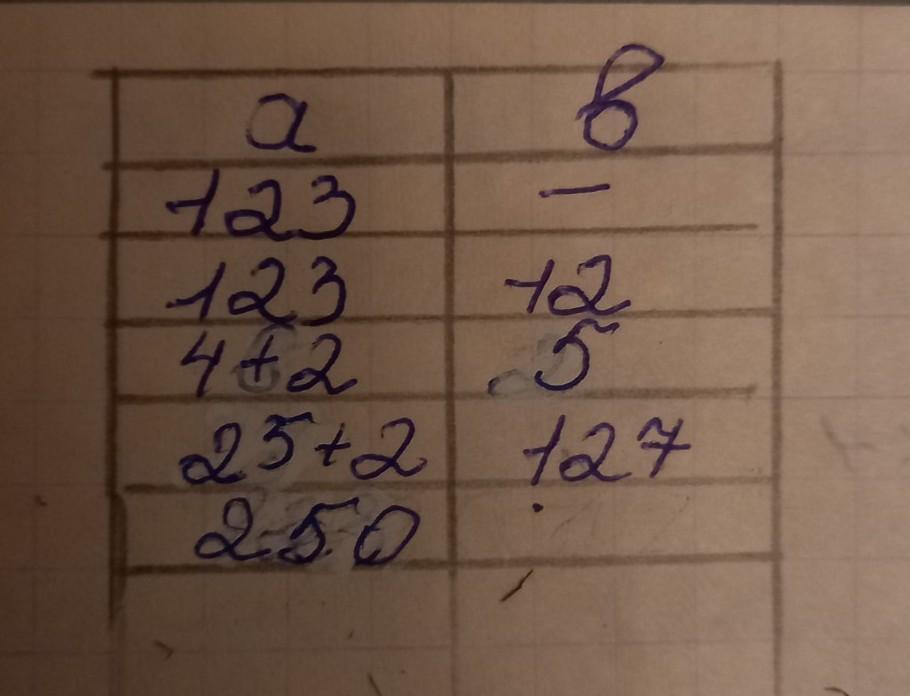 a в
123 —
123 12
4+2 5
25+2 127
250